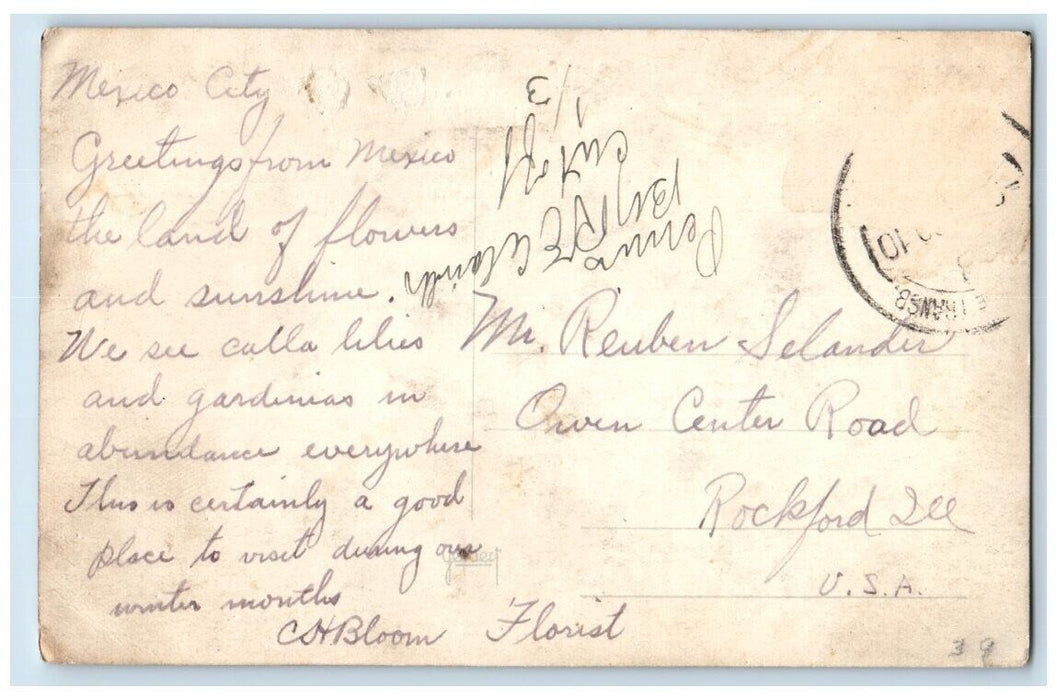 Mexico City
Greetings from Mexico
the land of flowers
and sunshine.
We see calla lilies
and gardinias in
abundance everywhere
This is certainly a good
place to visit during our
winter months
CHBloom Florist
Mr. Reuben Selander
Owen Center Road
Rockford Ill
U.S.A.
1/3
TRANSB.
10
39